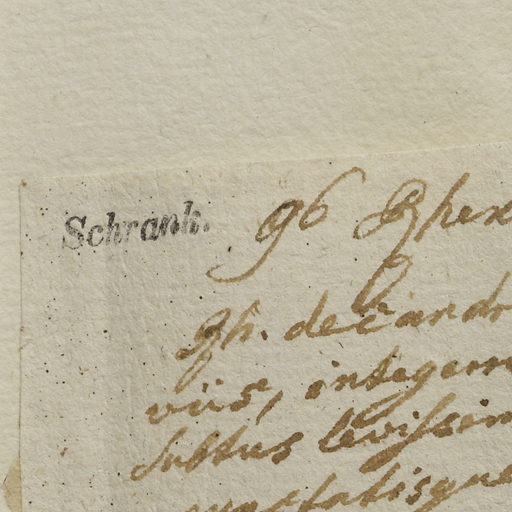 Schrank. 96 Rhex
Rh. decandr
viis, integerr
Subtus levissim